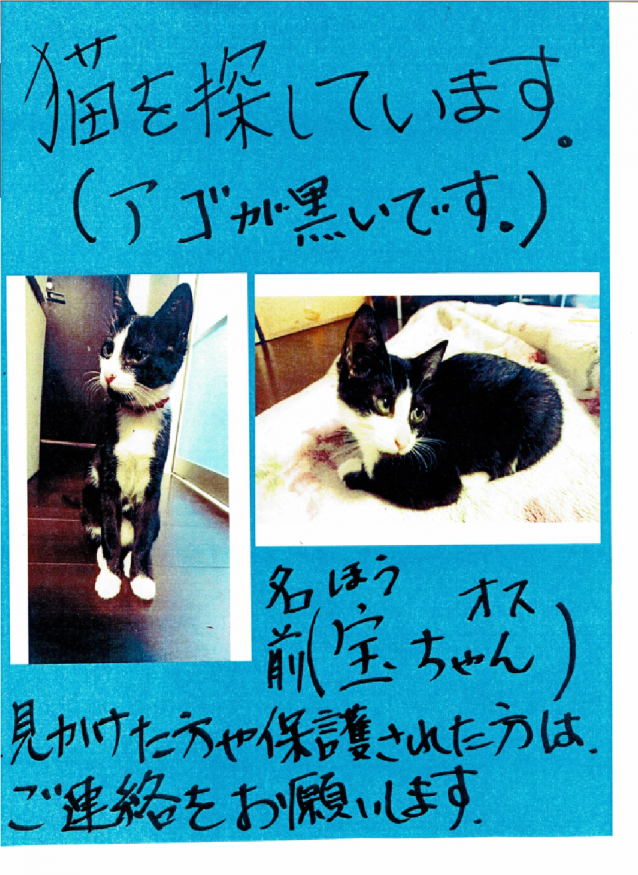 猫を探しています。
(アゴが黒いです。)
ほう オス
名前(宝ちゃん)
見かけた方や保護された方は、
ご連絡をお願いします。